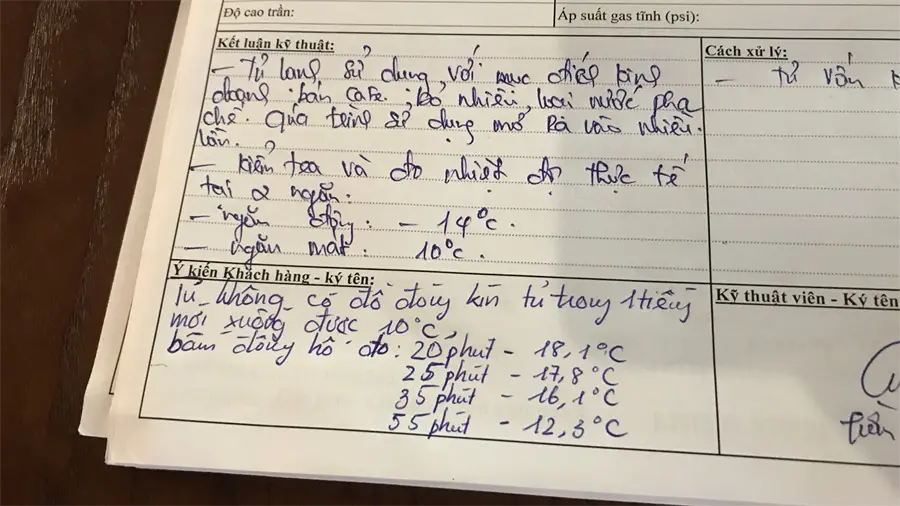 Độ cao trần:
Áp suất gas tĩnh (psi):
Kết luận kỹ thuật:
Cách xử lý:
- Tủ lạnh sử dụng với mục đích kinh
doanh bán cafe, bỏ nhiều loại nước pha
chế. Quá trình sử dụng mở ra vào nhiều
lần.
- Kiểm tra và đo nhiệt độ thực tế
tại 2 ngăn:
- ngăn đông: - 14°c.
- ngăn mát: 10°c.
- Tư vấn
Ý kiến Khách hàng - ký tên:
Kỹ thuật viên - Ký tên
Tủ không có đồ đóng kín tủ trong 1 tiếng
mới xuống được 10°C
bấm đồng hồ đo: 20 phút - 18,1°C
25 phút - 17,8°C
35 phút - 16,1°C
55 phút - 12,3°C